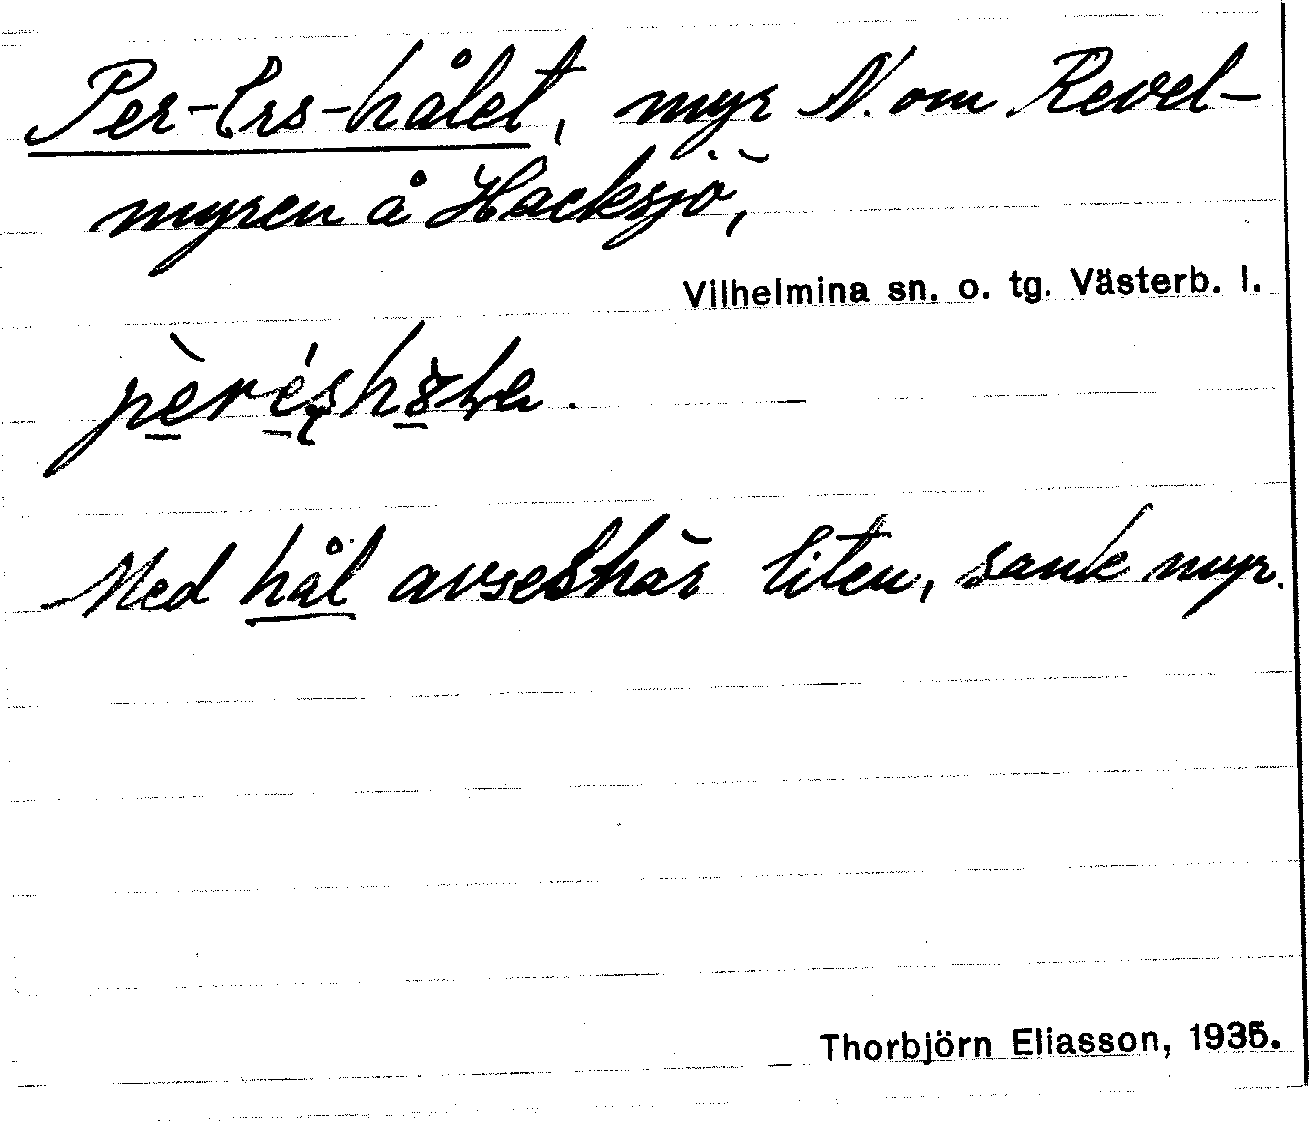 Per-Ers-hålet, myr N. om Revel-
myren å Hacksjö,
Vilhelmina sn. o. tg. Västerb. l.
Med hål avses här liten, sank myr.
Thorbjörn Eliasson, 1935.